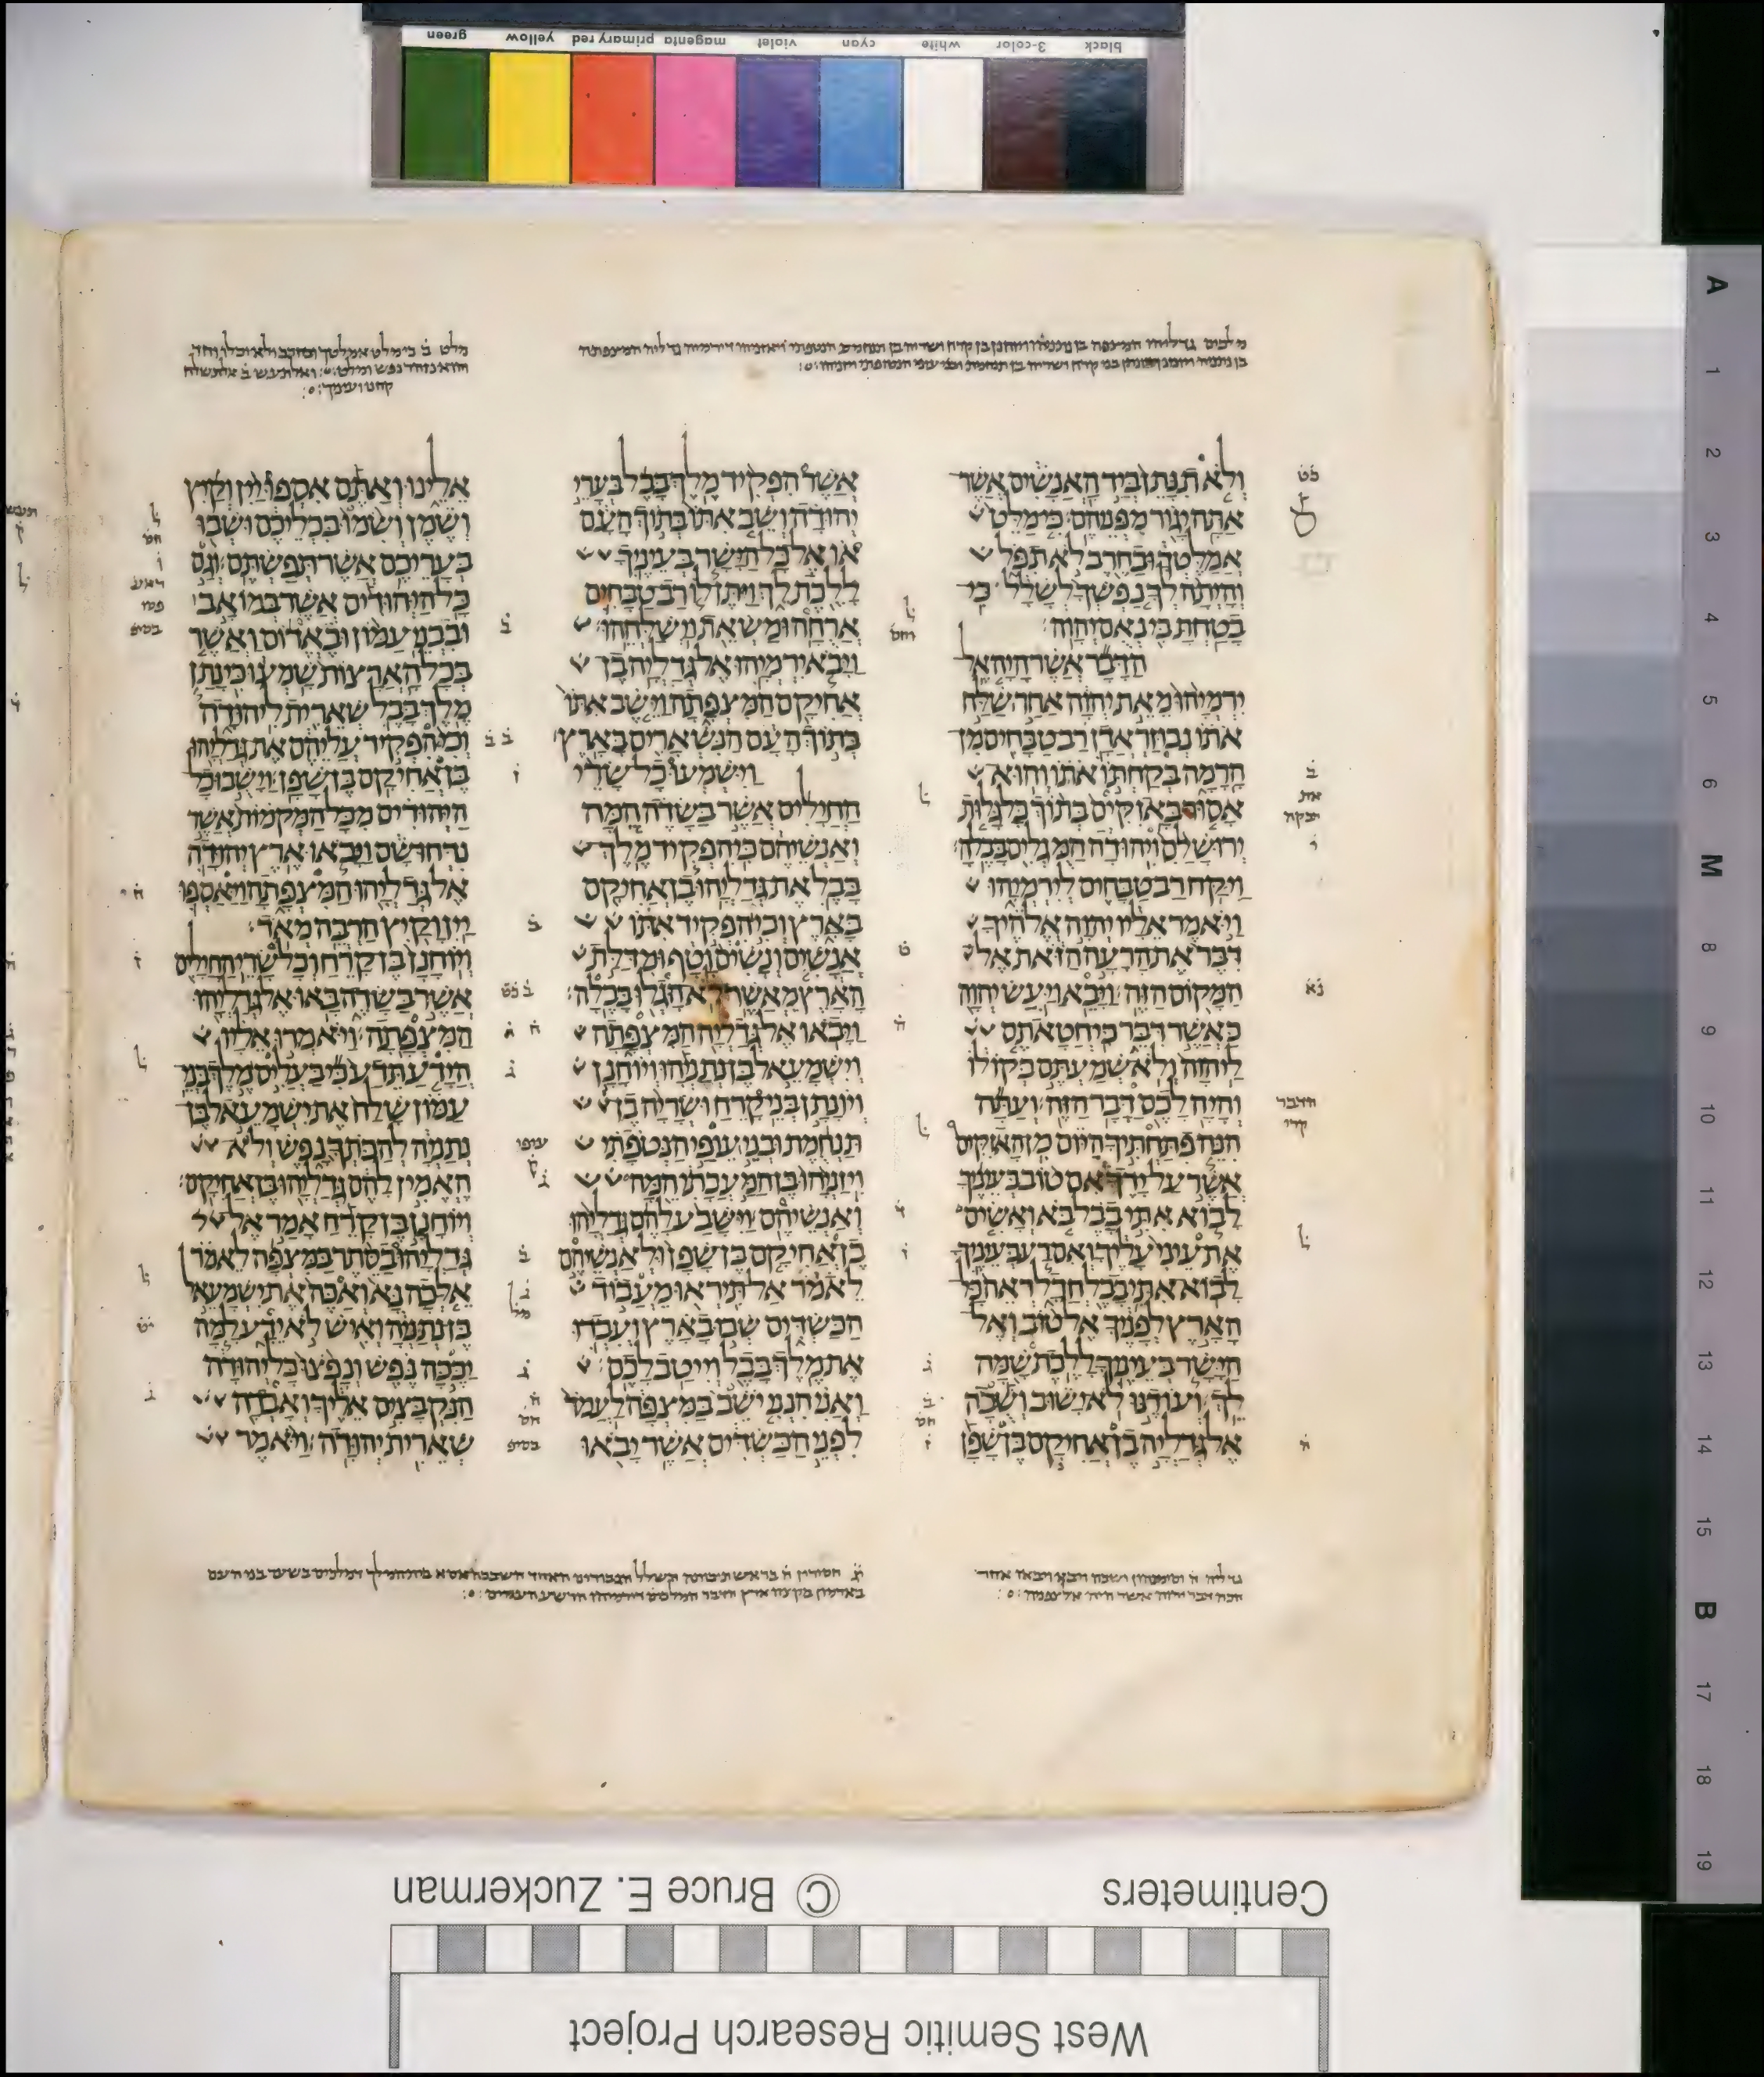 ולא תנתן ביד האנשים אשר
אתה יגור מפניהם׃ כי מלט
אמלטך ובחרב לא תפל
והיתה לך נפשך לשלל כי
בטחת בי נאם יהוה׃
הדבר אשר היה אל
ירמיהו מאת יהוה אחר שלח
אתו נבוזראדן רב טבחים מן
הרמה בקחתו אתו והוא
אסור באזקים בתוך כל גלות
ירושלם ויהודה המגלים בבלה׃
ויקח רב טבחים לירמיהו
ויאמר אליו יהוה אלהיך
דבר את הרעה הזאת אל
המקום הזה׃ ויבא ויעש יהוה
כאשר דבר כי חטאתם
ליהוה ולא שמעתם בקולו
והיה לכם דבר הזה׃ ועתה
הנה פתחתיך היום מן האזקים
אשר על ידך אם טוב בעיניך
לבוא אתי בבל בא ואשים
את עיני עליך ואם רע בעיניך
לבוא אתי בבל חדל ראה כל
הארץ לפניך אל טוב ואל
הישר בעיניך ללכת שמה
לך׃ ועודנו לא ישוב ושבה
אל גדליה בן אחיקם בן שפן
אשר הפקיד מלך בבל בערי
יהודה ושב אתו בתוך העם
או אל כל הישר בעיניך
ללכת לך ויתן לו רב טבחים
ארחה ומשאת וישלחהו׃
ויבא ירמיהו אל גדליה בן
אחיקם המצפתה וישב אתו
בתוך העם הנשארים בארץ׃
וישמעו כל שרי
החילים אשר בשדה המה
ואנשיהם כי הפקיד מלך
בבל את גדליהו בן אחיקם
בארץ וכי הפקיד אתו
אנשים ונשים וטף ומדלת
הארץ מאשר לא הגלו בבלה׃
ויבאו אל גדליה המצפתה
וישמעאל בן נתניהו ויוחנן
ויונתן בני קרח ושריה בן
תנחמת ובני עופי הנטפתי
ויזניהו בן המעכתי המה
ואנשיהם׃ וישבע להם גדליהו
בן אחיקם בן שפן ולאנשיהם
לאמר אל תיראו מעבוד
הכשדים שבו בארץ ועבדו
את מלך בבל וייטב לכם׃
ואני הנני ישב במצפה לעמד
לפני הכשדים אשר יבאו
אלינו ואתם אספו יין וקיץ
ושמן ושמו בכליכם ושבו
בעריכם אשר תפשתם׃ וגם
כל היהודים אשר במואב
ובבני עמון ובאדום ואשר
בכל הארצות שמעו כי נתן
מלך בבל שארית ליהודה
וכי הפקיד עליהם את גדליהו
בן אחיקם בן שפן׃ וישבו כל
היהודים מכל המקמות אשר
נדחו שם ויבאו ארץ יהודה
אל גדליהו המצפתה ויאספו
יין וקיץ הרבה מאד׃
ויוחנן בן קרח וכל שרי החילים
אשר בשדה באו אל גדליהו
המצפתה׃ ויאמרו אליו
הידע תדע כי בעליס מלך בני
עמון שלח את ישמעאל בן
נתניה להכתך נפש ולא
האמין להם גדליהו בן אחיקם׃
ויוחנן בן קרח אמר אל
גדליהו בסתר במצפה לאמר
אלכה נא ואכה את ישמעאל
בן נתניה ואיש לא ידע למה
יככה נפש ונפצו כל יהודה
הנקבצים אליך ואבדה
שארית יהודה׃ ויאמר
green yellow primary red magenta violet cyan white 3-color black
A 1 2 3 4 5 6 M 8 9 10 11 12 13 14 15 B 17 18 19
Centimeters © Bruce E. Zuckerman
West Semitic Research Project